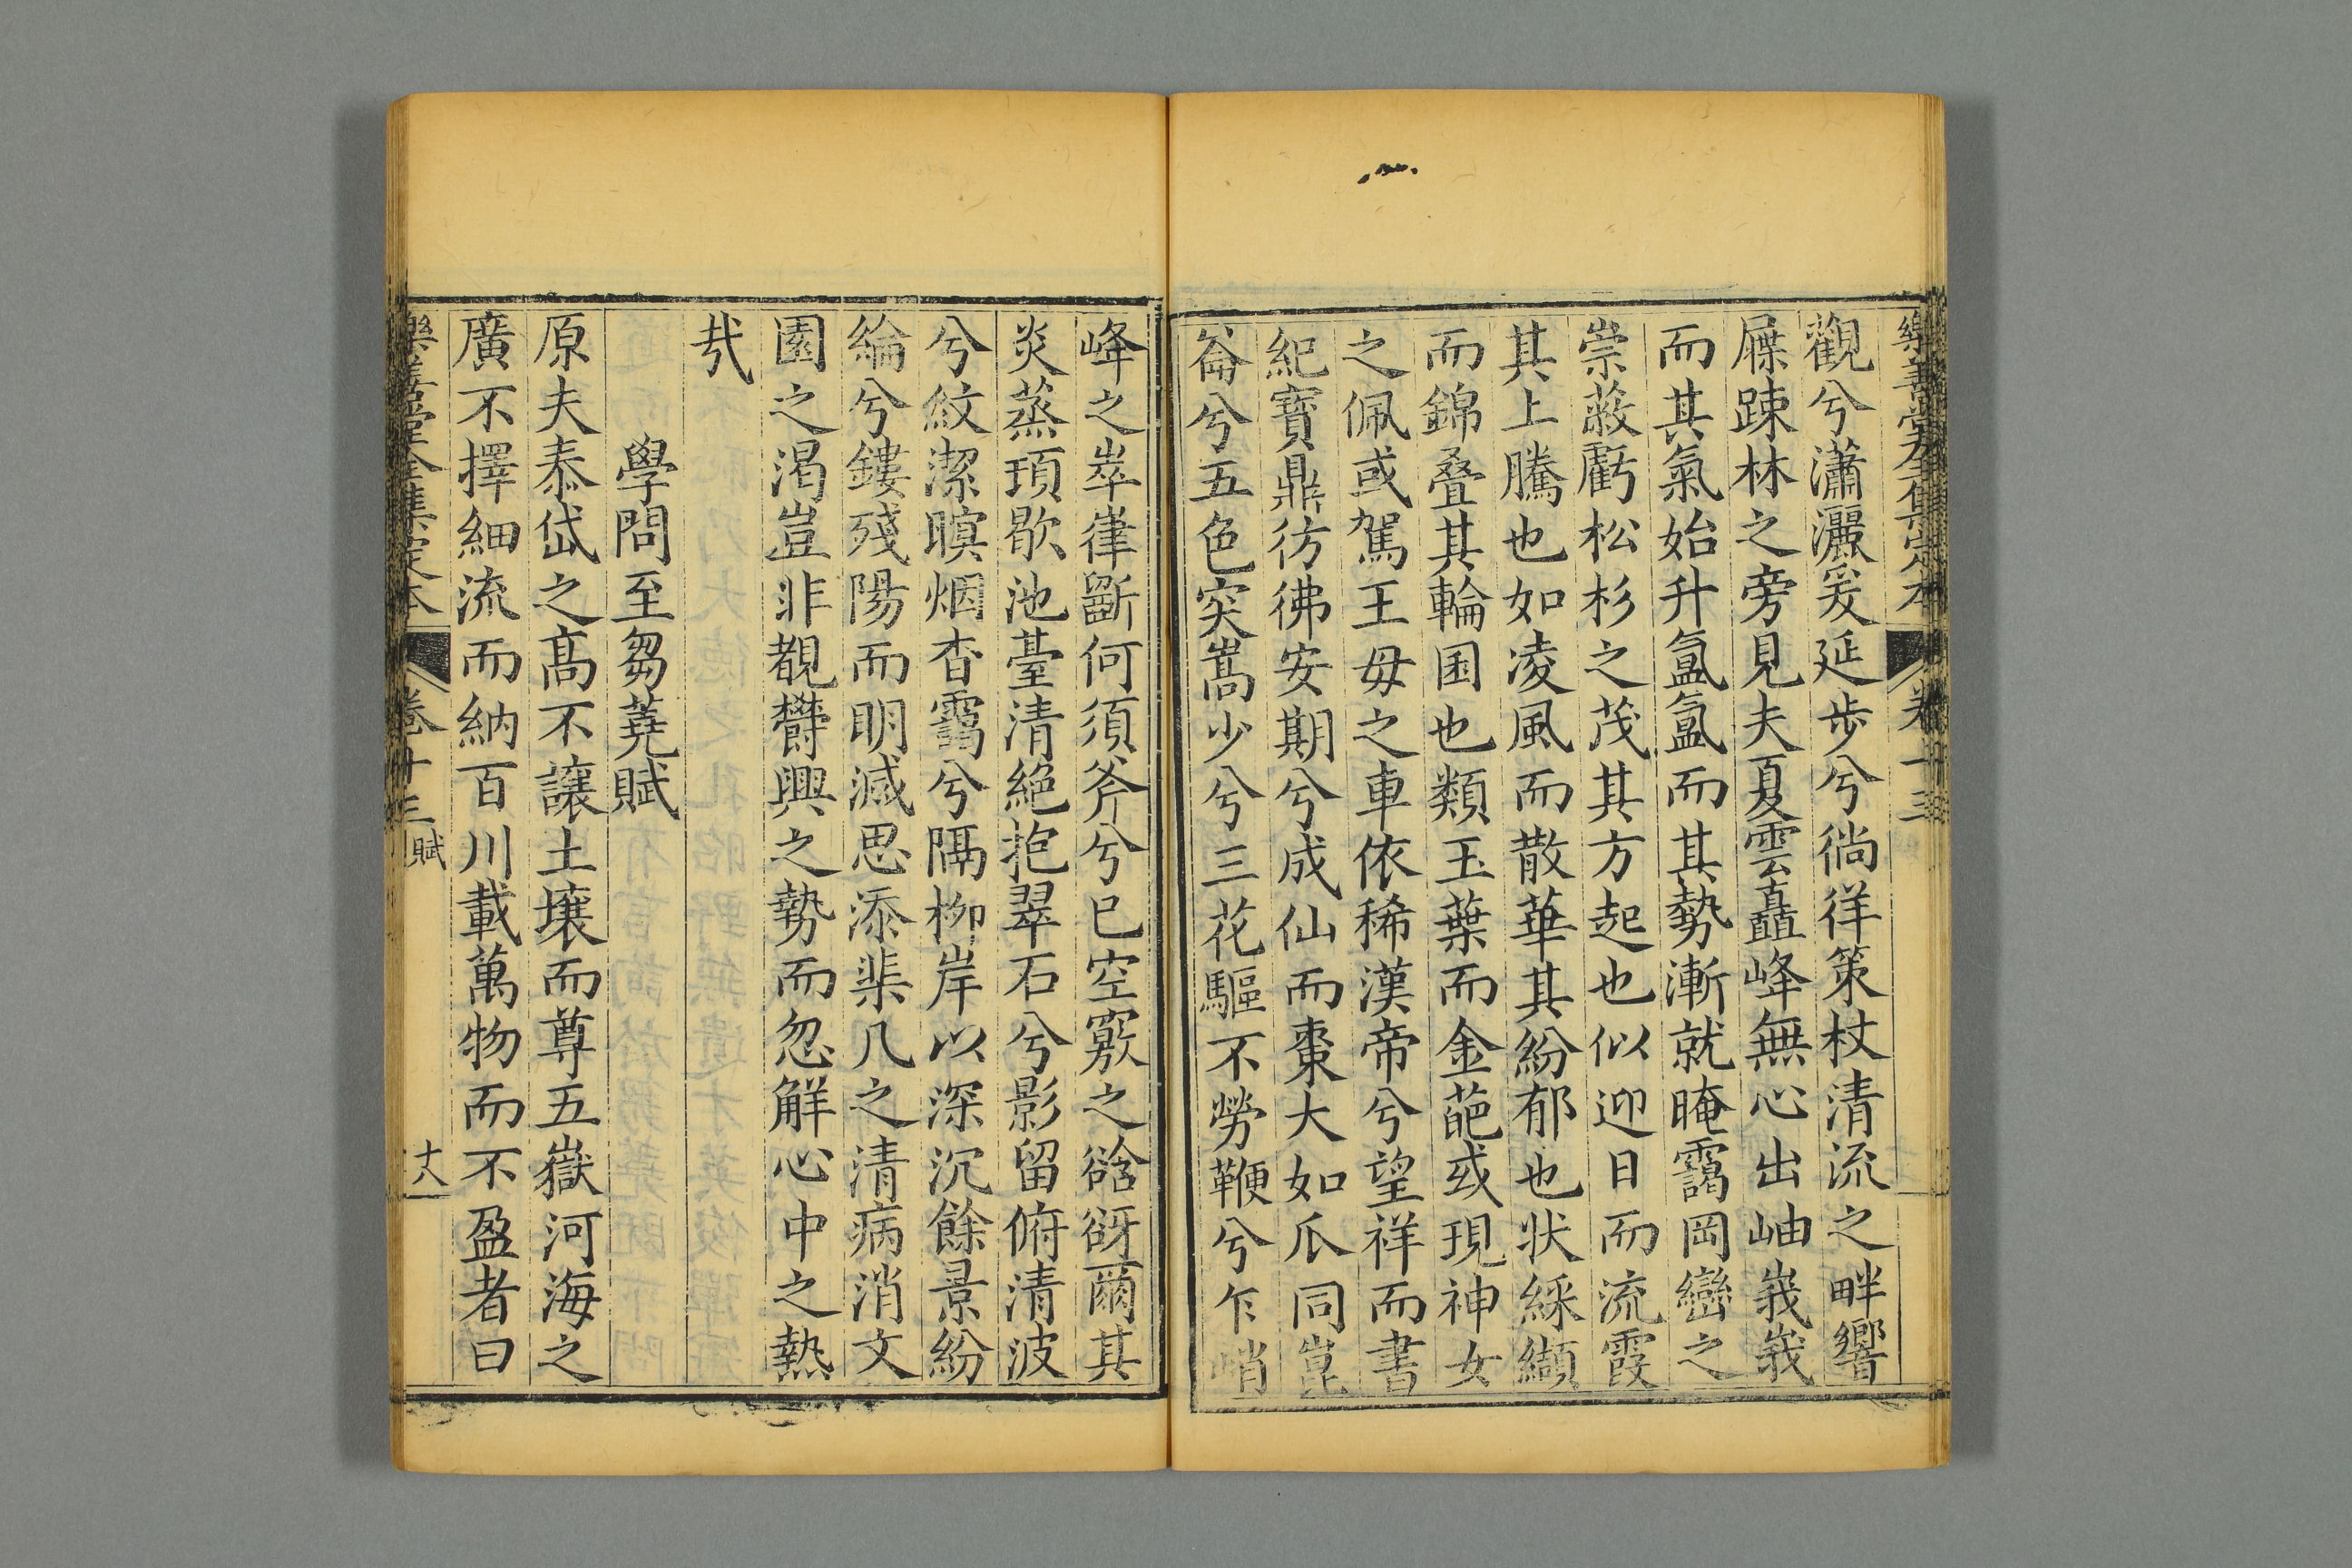 樂善堂全集定本 卷十三
觀兮瀟灑爰延步兮徜徉策杖清流之畔響
屧踈林之旁見夫夏雲矗峰無心出岫峩峩
而其氣始升氳氳而其勢漸就晻靄岡巒之
崇蔽虧松杉之茂其方起也似迎日而流霞
其上騰也如凌風而散華其紛郁也狀綵纈
而錦疊其輪囷也類玉葉而金葩或現神女
之佩或駕王母之車依稀漢帝兮望祥而書
紀寶鼎彷彿安期兮成仙而棗大如瓜同崑
崙兮五色突嵩少兮三花驅不勞鞭兮乍峭
峰之崒嵂斷何須斧兮已空竅之谽谺爾其
炎蒸頊歇池臺清絕抱翠石兮影留俯清波
兮紋潔暝烟杳靄兮隔柳岸以深沉餘景紛
綸兮鏤殘陽而明滅思添棐几之清病消文
園之渴豈非覩欝興之勢而忽解心中之熱
㢤
學問至芻蕘賦
原夫泰岱之高不讓土壤而尊五嶽河海之
廣不擇細流而納百川載萬物而不盈者曰
樂善堂全集定本 卷十三 賦 十八